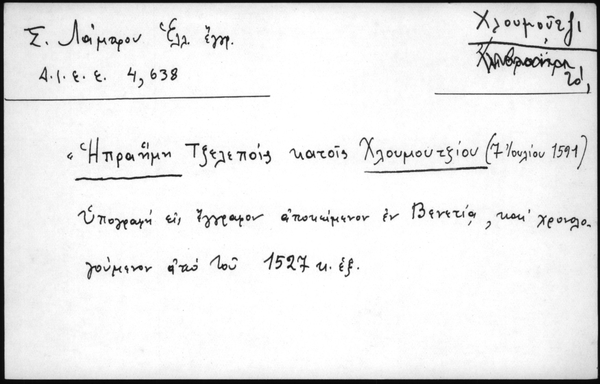 Σ. Λάμπρου Ἑλλ. ἔγγρ.
Δ.Ι.Ε.Ε. 4,638
Χλουμοῦτζι
τό,
« Ἡπραήμη Τζελεπόις κατοῖς Χλουμουτζίου (7 Ἰουλίου 1591)
Ὑπογραφή εἰς ἔγγραφον ἀποκείμενον ἐν Βενετίᾳ, καί χρονολο-
γούμενον ἀπό τοῦ 1527 κ. ἑξ.